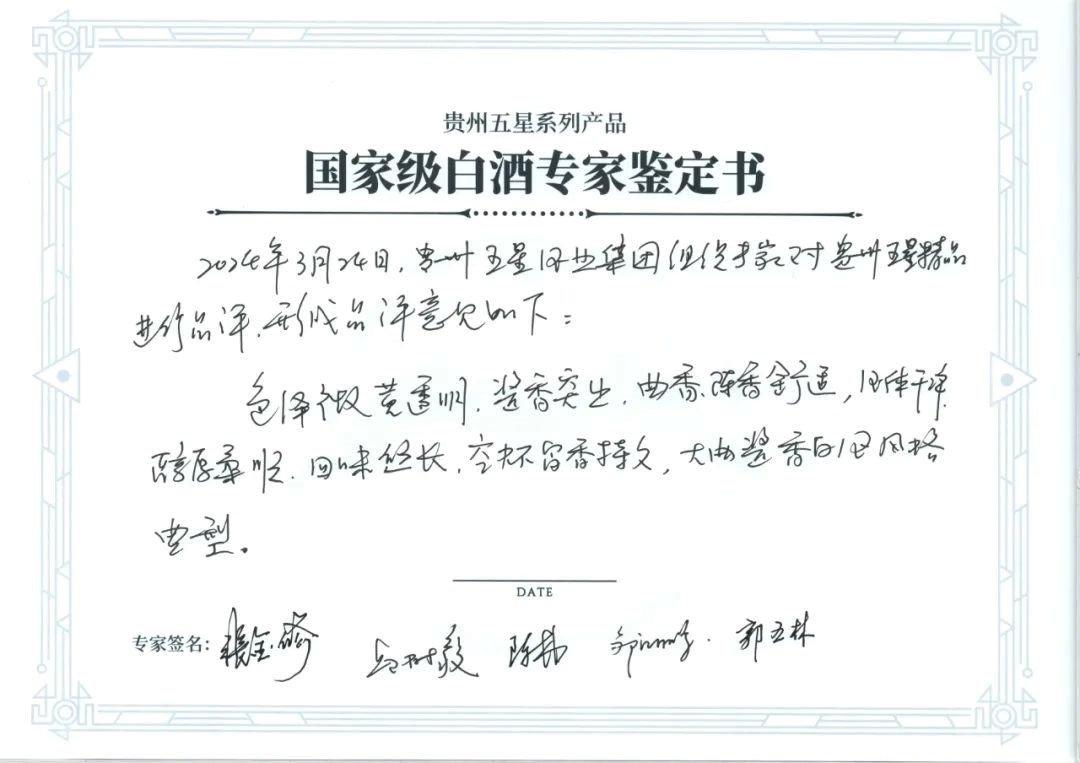 贵州五星系列产品
国家级白酒专家鉴定书
2024年3月24日，贵州五星酒业集团组织专家对贵州五星精品
进行品评，形成品评意见如下：
色泽微黄透明，酱香突出，曲香、陈香舒适，酒体干净
醇厚柔顺，回味悠长，空杯留香持久，大曲酱香白酒风格
典型。
DATE
专家签名： 郭五林